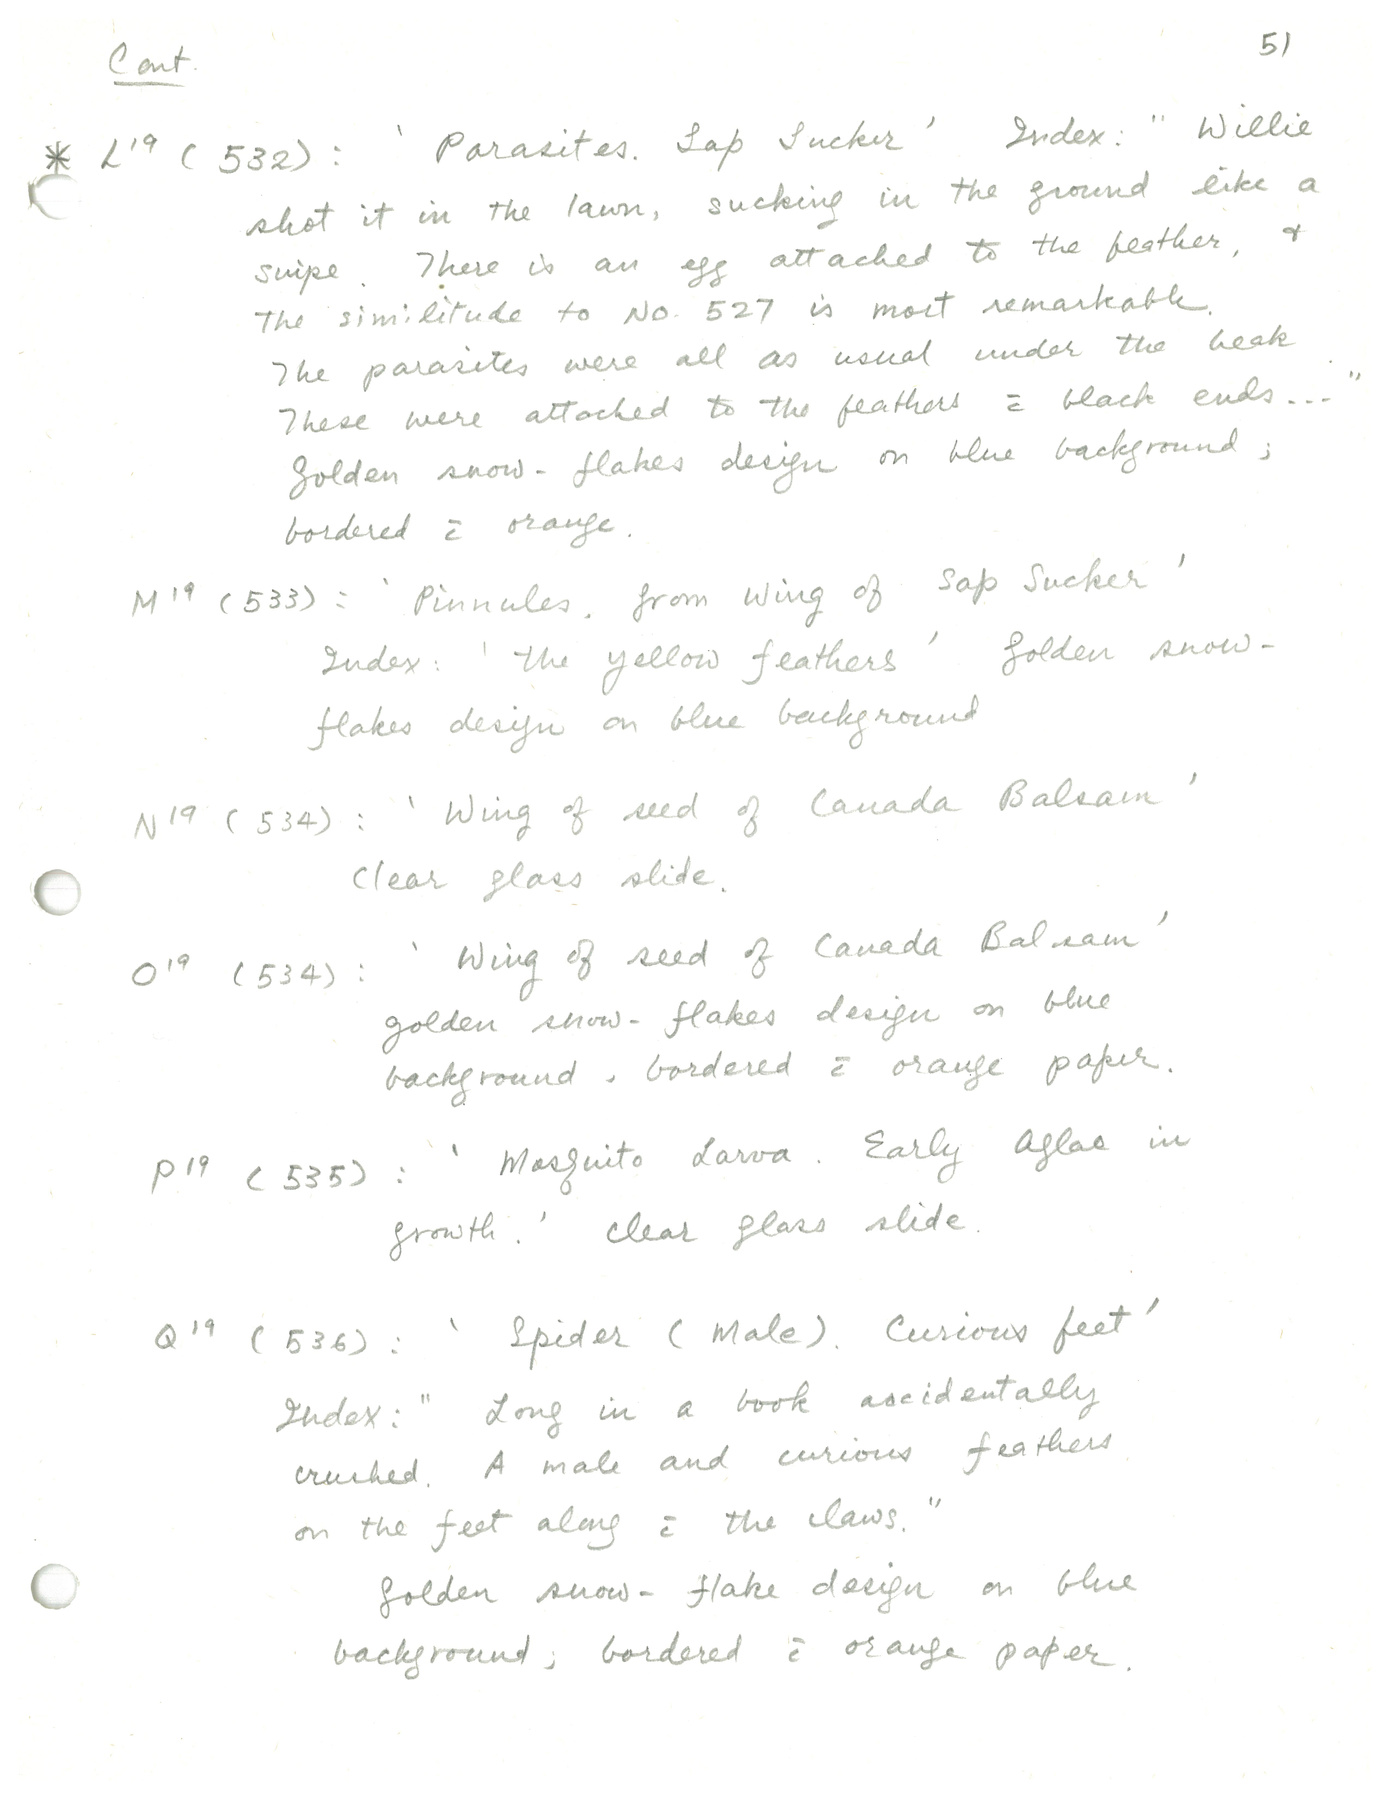 Cont.
51
* L'19 (532): 'Parasites. Sap Sucker' Index: " Willie
shot it in the lawn, sucking in the ground like a
snipe. There is an egg attached to the feather, &
the similitude to No. 527 is most remarkable.
The parasites were all as usual under the beak
These were attached to the feathers c̄ black ends..."
Golden snow-flakes design on blue background;
bordered c̄ orange.
M'19 (533): 'Pinnules. from wing of Sap Sucker'
Index: 'the yellow feathers' Golden snow-
flakes design on blue background
N'19 (534): 'Wing of seed of Canada Balsam'
Clear glass slide.
O'19 (534): 'Wing of seed of Canada Balsam'
golden snow-flakes design on blue
background. bordered c̄ orange paper.
P'19 (535): 'Mosquito Larva. Early Aglae in
growth.' clear glass slide.
Q'19 (536): 'Spider (Male). Curious feet'
Index: " Long in a book accidentally
crushed. A male and curious feathers
on the feet along c̄ the claws."
Golden snow-flake design on blue
background; bordered c̄ orange paper.